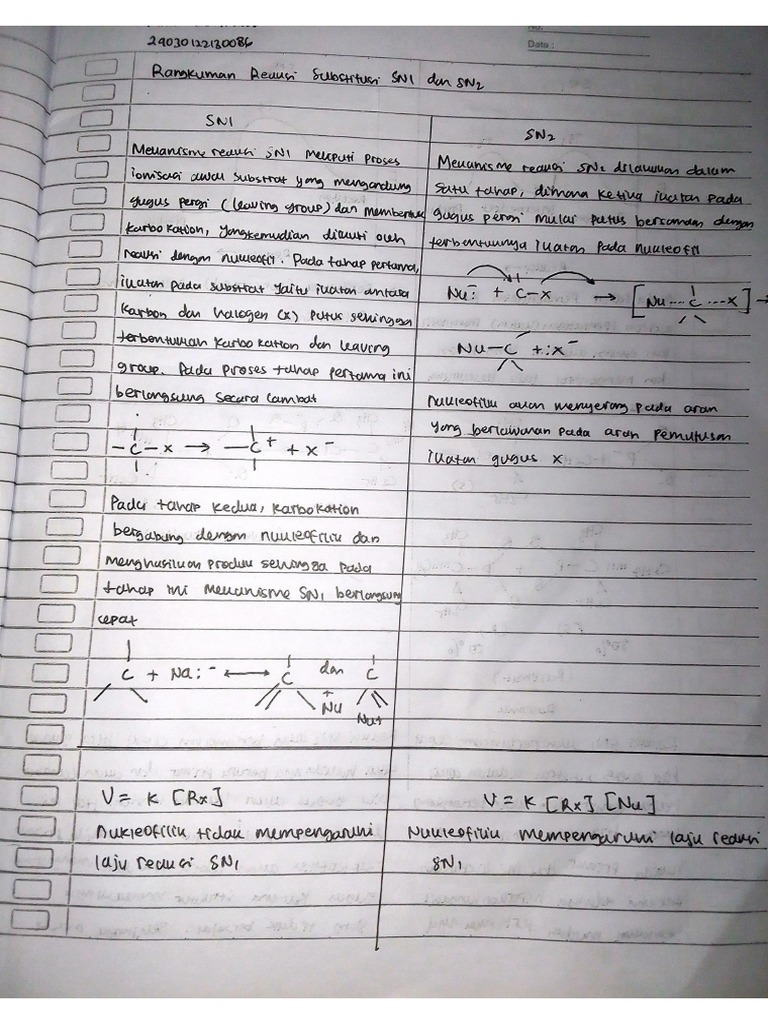 No.
24030122130086
Date :
Rangkuman Reaksi Substitusi SN1 dan SN2
SN1
Mekanisme reaksi SN1 meliputi proses
ionisasi awal substrat yang mengandung
gugus pergi (leaving group) dan membentuk
karbokation, yang kemudian diikuti oleh
reaksi dengan nukleofil. Pada tahap pertama,
ikatan pada substrat yaitu ikatan antara
karbon dan halogen (x) putus sehingga
terbentuklah karbokation dan leaving
group. Pada proses tahap pertama ini
berlangsung secara lambat
-C-x → -C+ + x-
Pada tahap kedua, karbokation
bergabung dengan nukleofilik dan
menghasilkan produk sehingga pada
tahap ini mekanisme SN1 berlangsung
cepat
C + Na:- ↔ C + Nu dan C Nu+
V = K [Rx]
Nukleofilik tidak mempengaruhi
laju reaksi SN1
SN2
Mekanisme reaksi SN2 dilakukan dalam
satu tahap, dimana ketika ikatan pada
gugus pergi mulai putus bersamaan dengan
terbentuknya ikatan pada nukleofil
Nu:- + C-x → [Nu....C....x] →
Nu-C + :x-
Nukleofilik akan menyerang pada arah
yang berlawanan pada arah pemutusan
ikatan gugus x
V = K [Rx] [Nu]
Nukleofilik mempengaruhi laju reaksi
SN1